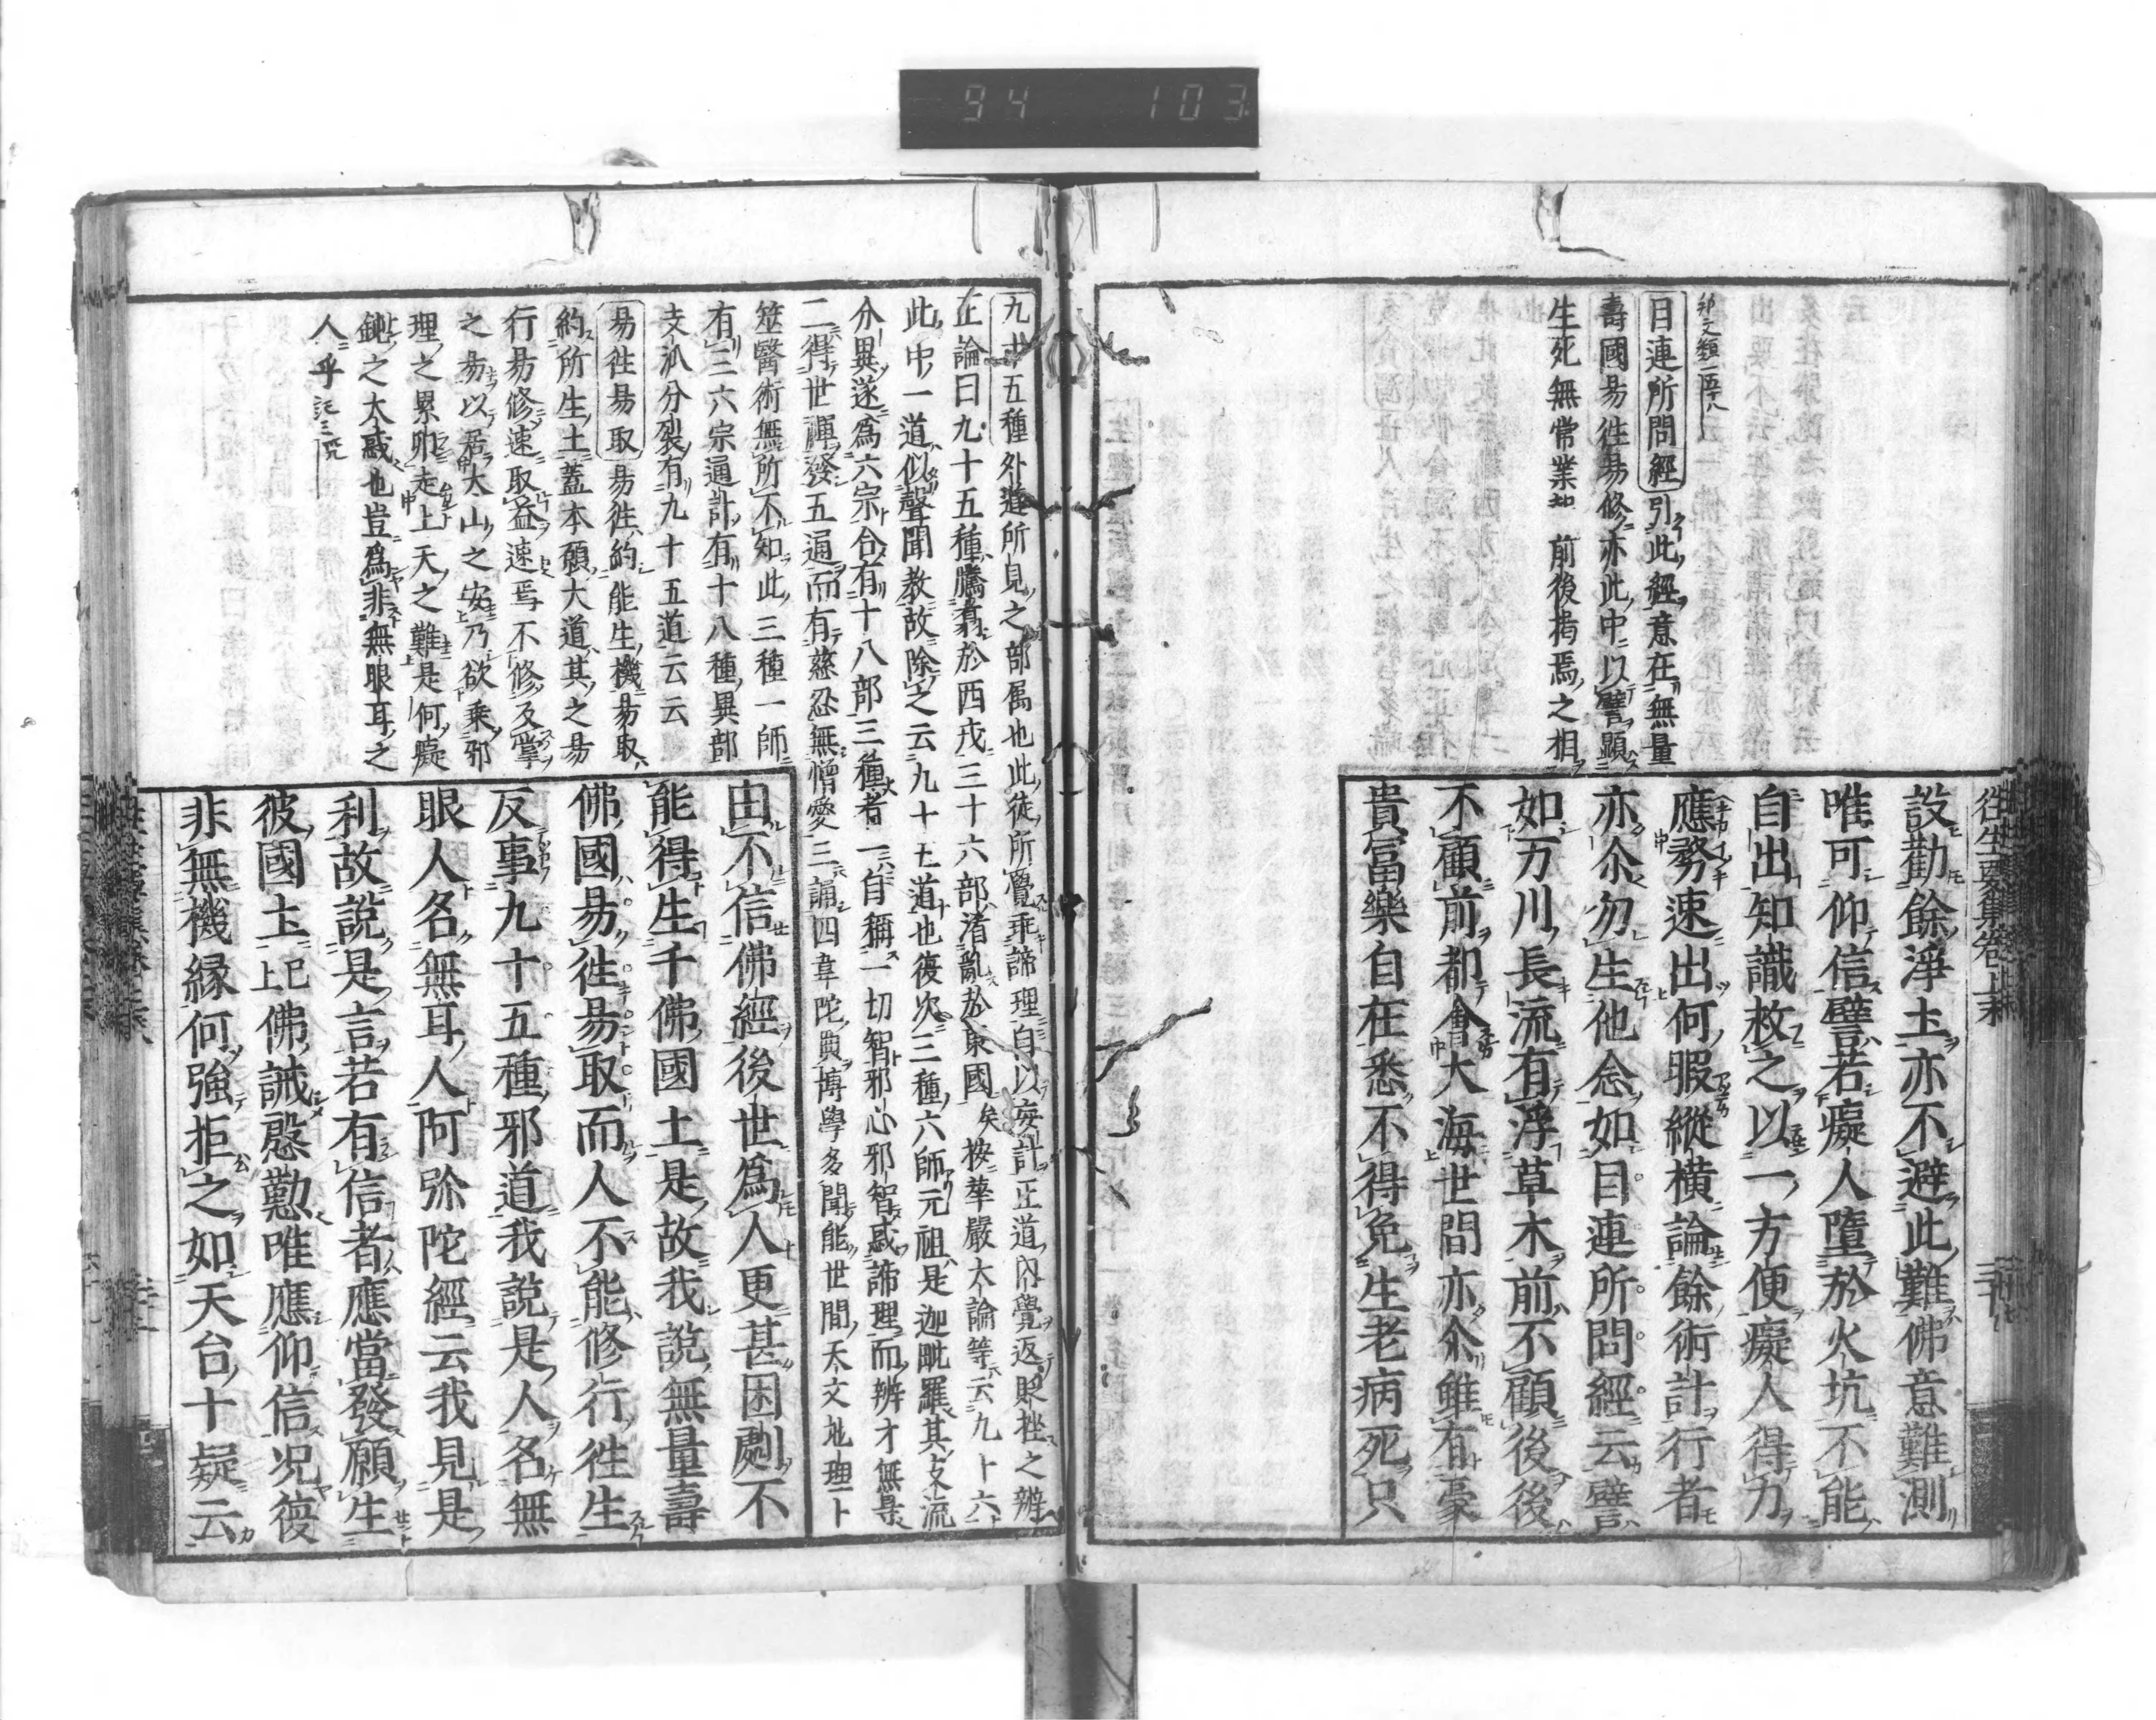 94 103
往生要集卷上末
設勸餘淨土亦不避此難佛意難測
唯可仰信譬若癡人墮於火坑不能
自出知識救之以一方便癡人得力
應務速出何暇縱橫論餘術計行者
亦尒勿生他念如目連所問經云譬
如万川長流有浮草木前不顧後後
不顧前都會大海世間亦尒雖有豪
貴富樂自在悉不得免生老病死只
目連所問經引此經意在無量
壽國易徃易修亦此中以譬顯
生死無常業 前後揭焉之相
九十五種外道所見之部属也此徒所覺乖諦理自以妄計正道內覺返貶挫之辨
正論曰九十五種騰翥於西戎三十六部淆亂於東國矣 按華嚴大論等云九十六
此中一道似聲聞教故除之云九十五道也復次三種六師元祖是迦毗羅其支流
分異遂為六宗合有十八部三種者一自稱一切智邪心邪智惑諦理而辨才無㝵
二得世禪發五通而有慈忍無憎愛三誦四韋陀貫博學多聞能世間天文地理卜
筮醫術無所不知此三種一師
有三六宗通計有十八種異部
支派分裂有九十五道云云
易徃易取易徃約能生機易取
約所生土蓋本願大道其之易
行易修速取益速焉不修及掌
之易以居大山之安乃欲乘邪
理之累卵走上天之難是何癡
鈍之太惑也豈為非無眼耳之
人乎
由不信佛經後世為人更甚困劇不
能得生千佛國土是故我說無量壽
佛國易徃易取而人不能修行徃生
反事九十五種邪道我說是人名無
眼人名無耳人阿弥陀經云我見是
利故說是言若有信者應當發願生
彼國土已上佛誡慇懃唯應仰信况復
非無機緣何強拒之如天台十疑云